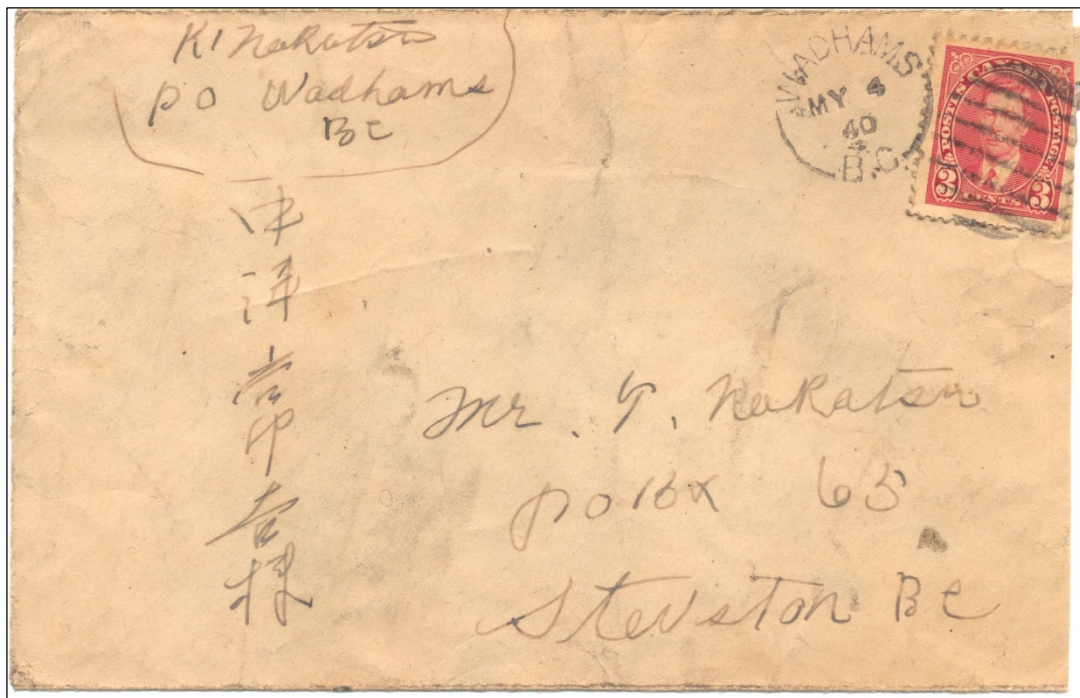 K Nakatsu
PO Wadhams
BC
WADHAMS
MY 4
40
B.C.
POSTES CANADA POSTAGE
3 CENTS 3
中津吉様
Mr. Y. Nakatsu
PO Box 65
Stevston BC